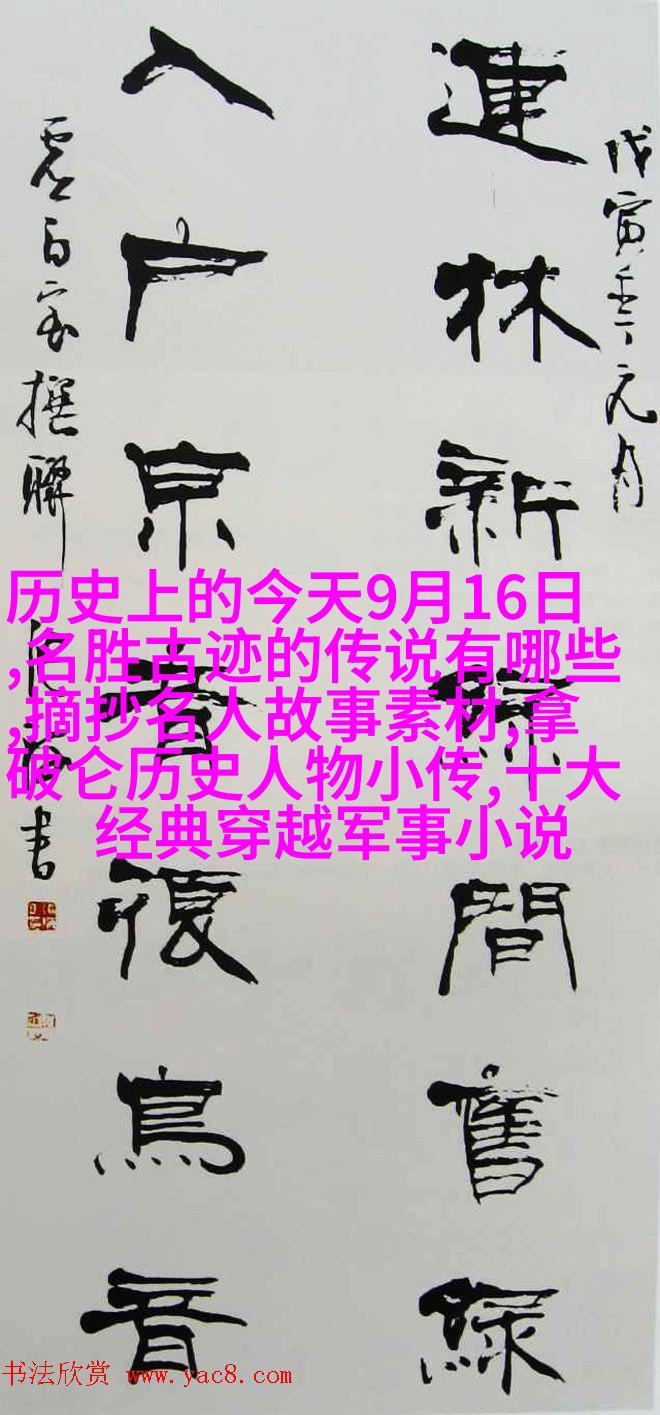 戊寅年元月
連林新綠間舊綠
入户京音復鳥音
撰聯
書
历史上的今天9月16日
,名胜古迹的传说有哪些
,摘抄名人故事素材,拿
破仑历史人物小传,十大
经典穿越军事小说
书法欣赏 www.yac8.com